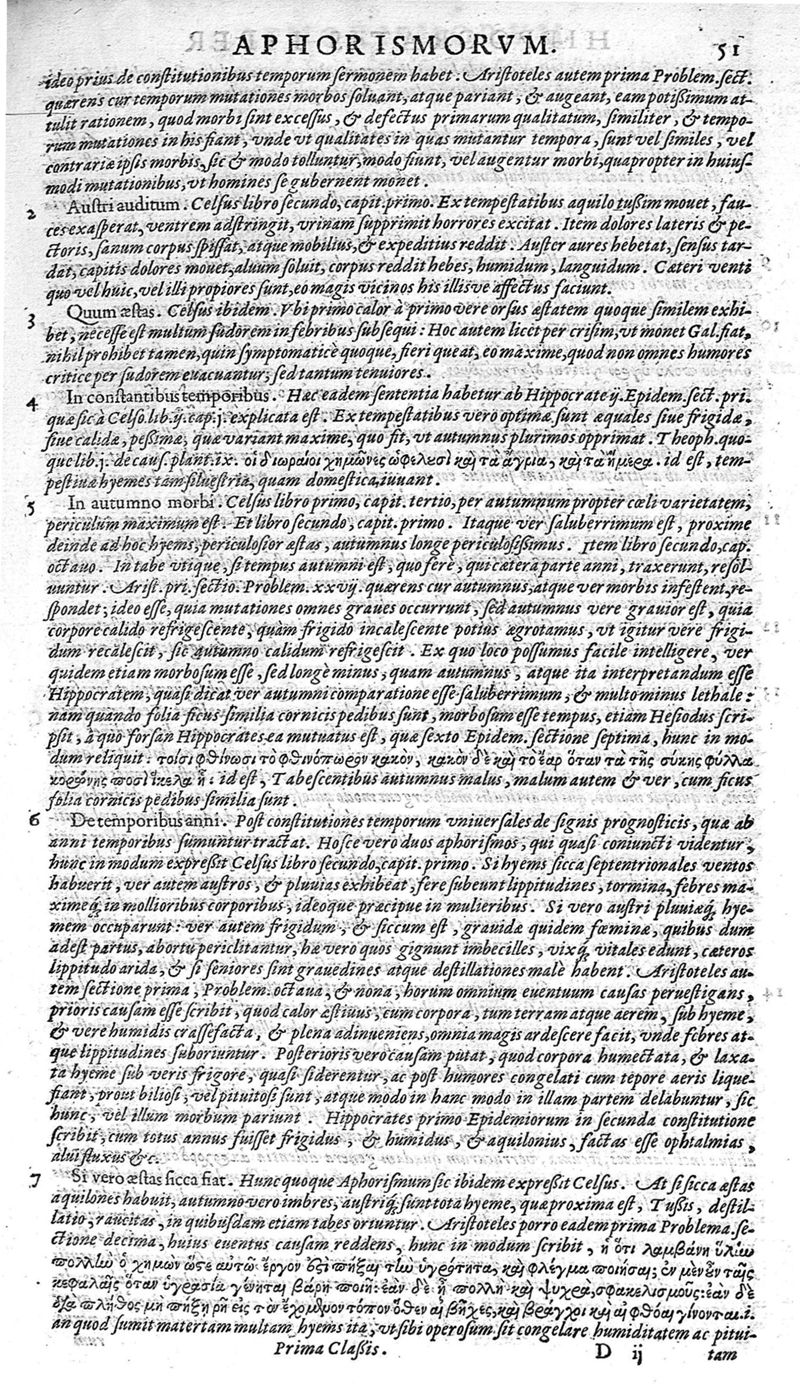 APHORISMORVM. 51
ideo prius de constitutionibus temporum sermonem habet. Aristoteles autem prima Problem. sect.
quærens cur temporum mutationes morbos soluant, atque pariant, & augeant, eam potißimum at-
tulit rationem, quod morbi sint excessus, & defectus primarum qualitatum, similiter, & tempo-
rum mutationes in his fiant, vnde vt qualitates in quas mutantur tempora, sunt vel similes, vel
contrariæ ipsis morbis, sic & modo tolluntur, modo fiunt, vel augentur morbi, quapropter in huius-
modi mutationibus, vt homines se gubernent monet.
2 Austri auditum. Celsus libro secundo, capit. primo. Ex tempestatibus aquilo tußim mouet, fau-
ces exasperat, ventrem adstringit, vrinam supprimit horrores excitat. Item dolores lateris & pe-
ctoris, sanum corpus spissat, atque mobilius, & expeditius reddit. Auster aures hebetat, sensus tar-
dat, capitis dolores mouet, aluum soluit, corpus reddit hebes, humidum, languidum. Cæteri venti
quo vel huic, vel illi propiores sunt, eo magis vicinos his illisve affectus faciunt.
3 Quum æstas. Celsus ibidem. Vbi primo calor à primo vere orsus æstatem quoque similem exhi-
bet, necesse est multum sudorem in febribus subsequi: Hoc autem licet per crisim, vt monet Gal. fiat,
nihil prohibet tamen, quin symptomaticè quoque, fieri queat, eo maxime, quod non omnes humores
critice per sudorem euacuantur, sed tantum tenuiores.
4 In constantibus temporibus. Hæc eadem sententia habetur ab Hippocrate ij. Epidem. sect. pri.
quæ sic à Celso. lib. ij. cap. j. explicata est. Ex tempestatibus vero optimæ sunt æquales siue frigidæ,
siue calidæ, peßimæ, quæ variant maxime, quo fit, vt autumnus plurimos opprimat. Theoph. quo-
que lib. j. de caus. plant. ix. οἱ διωραῖοι χημῶνες ὠφελȣσι καὶ τὰ ἄγρια, καὶ τὰ ἥμερα. id est, tem-
pestiuæ hyemes tam siluestria, quam domestica, iuuant.
5 In autumno morbi. Celsus libro primo, capit. tertio, per autumnum propter cœli varietatem,
periculum maximum est. Et libro secundo, capit. primo. Itaque ver saluberrimum est, proxime
deinde ad hoc hyems, periculosior æstas, autumnus longe periculosißimus. Item libro secundo, cap.
octauo. In tabe vtique, si tempus autumni est, quo fere, qui cætera parte anni, traxerunt, resol-
uuntur. Arist. pri. sectio. Problem. xxvij. quærens cur autumnus, atque ver morbis infestent, re-
spondet; ideo esse, quia mutationes omnes graues occurrunt, sed autumnus vere grauior est, quia
corpore calido refrigescente, quàm frigido incalescente potius ægrotamus, vt igitur vere frigi-
dum recalescit, sic autumno calidum refrigescit. Ex quo loco possumus facile intelligere, ver
quidem etiam morbosum esse, sed longè minus, quam autumnus, atque ita interpretandum esse
Hippocratem, quasi dicat ver autumni comparatione esse saluberrimum, & multo minus lethale:
nam quando folia ficus similia cornicis pedibus sunt, morbosum esse tempus, etiam Hesiodus scri-
psit, à quo forsan Hippocrates ea mutuatus est, quæ sexto Epidem. sectione septima, hunc in mo-
dum reliquit. τοῖσι φθίνωσι τὸ φθινόπωρον κακὸν, κακὸν δὲ καὶ τὸ ἔαρ ὅταν τὰ τῆς σύκης φύλλα
κορώνης ποσὶ ἴκελα ᾖ: id est, Tabescentibus autumnus malus, malum autem & ver, cum ficus
folia cornicis pedibus similia sunt.
6 De temporibus anni. Post constitutiones temporum vniuersales de signis prognosticis, quæ ab
anni temporibus sumuntur tractat. Hosce vero duos aphorismos, qui quasi coniuncti videntur,
hunc in modum expreßit Celsus libro secundo, capit. primo. Si hyems sicca septentrionales ventos
habuerit, ver autem austros, & pluuias exhibeat, fere subeunt lippitudines, tormina, febres ma-
ximeq; in mollioribus corporibus, ideoque præcipue in mulieribus. Si vero austri pluuiæq; hye-
mem occuparunt: ver autem frigidum, & siccum est, grauidæ quidem fœminæ, quibus dum
adest partus, abortu periclitantur, hæ vero quos gignunt imbecilles, vixq; vitales edunt, cæteros
lippitudo arida, & si seniores sint grauedines atque destillationes malè habent. Aristoteles au-
tem sectione prima, Problem. octaua, & nona, horum omnium euentuum causas peruestigans,
prioris causam esse scribit, quod calor æstiuus, cum corpora, tum terram atque aerem, sub hyeme,
& vere humidis crassefacta, & plena adinueniens, omnia magis ardescere facit, vnde febres at-
que lippitudines suboriuntur. Posterioris vero causam putat, quod corpora humectata, & laxa-
ta hyeme sub veris frigore, quasi siderentur, ac post humores congelati cum tepore aeris lique-
fiant, prout biliosi, vel pituitosi sunt, atque modo in hanc modo in illam partem delabuntur, sic
hunc, vel illum morbum pariunt. Hippocrates primo Epidemiorum in secunda constitutione
scribit, cum totus annus fuisset frigidus, & humidus, & aquilonius, factas esse ophtalmias,
alui fluxus &c.
7 Si vero æstas sicca fiat. Hunc quoque Aphorismum sic ibidem expreßit Celsus. At si sicca æstas
aquilones habuit, autumno vero imbres, austriq; sunt tota hyeme, quæ proxima est, Tußis, destil-
latio, raucitas, in quibusdam etiam tabes oriuntur. Aristoteles porro eadem prima Problema. se-
ctione decima, huius euentus causam reddens, hunc in modum scribit, ἢ ὅτι λαμβάνη ὕλην
πολλὴν ὁ χημὼν ὥστε αὐτῶ ἔργον ὅτι πῆξαι τὴν ὑγρότητα, καὶ φλέγμα ποιῆσαι; ἐν μὲν οὖν ταῖς
κεφαλαῖς ὅταν ὑγρασία γίνηται βάρη ποιῆ: ἐὰν δὲ ᾖ πολλὴ καὶ ψυχρὰ, σφακελισμοὺς: ἐὰν δὲ
διὰ πλῆθος μὴ πήξῃ ῥῆ εἰς τὸν ἐχόμενον τόπον ὅθεν αἱ βῆχες, καὶ βράγχοι καὶ αἱ φθόαι γίνονται. i.
an quod sumit materiam multam hyems ita, vt sibi operosum sit congelare humiditatem ac pitui-
Prima Classis. D ij tam